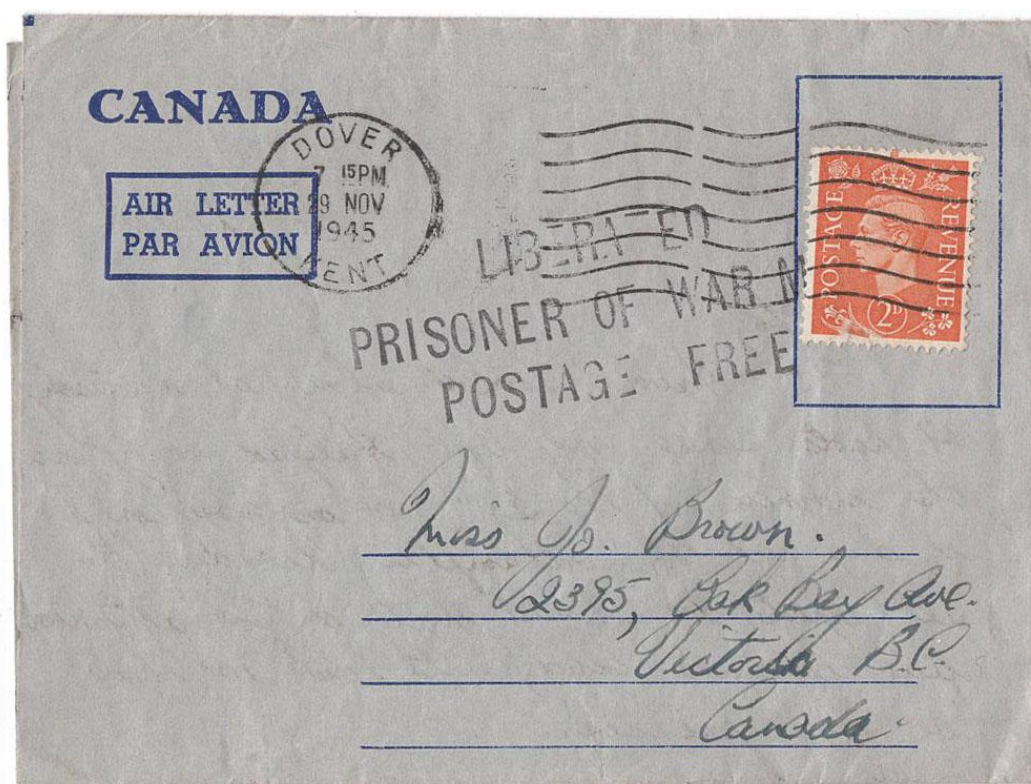 CANADA
AIR LETTER
PAR AVION
DOVER
7 15PM
29 NOV
1945
KENT
LIBERATED
PRISONER OF WAR M
POSTAGE FREE
POSTAGE
REVENUE
2D
Miss Jo. Brown.
2395, Oak Bay Ave.
Victoria B.C.
Canada.